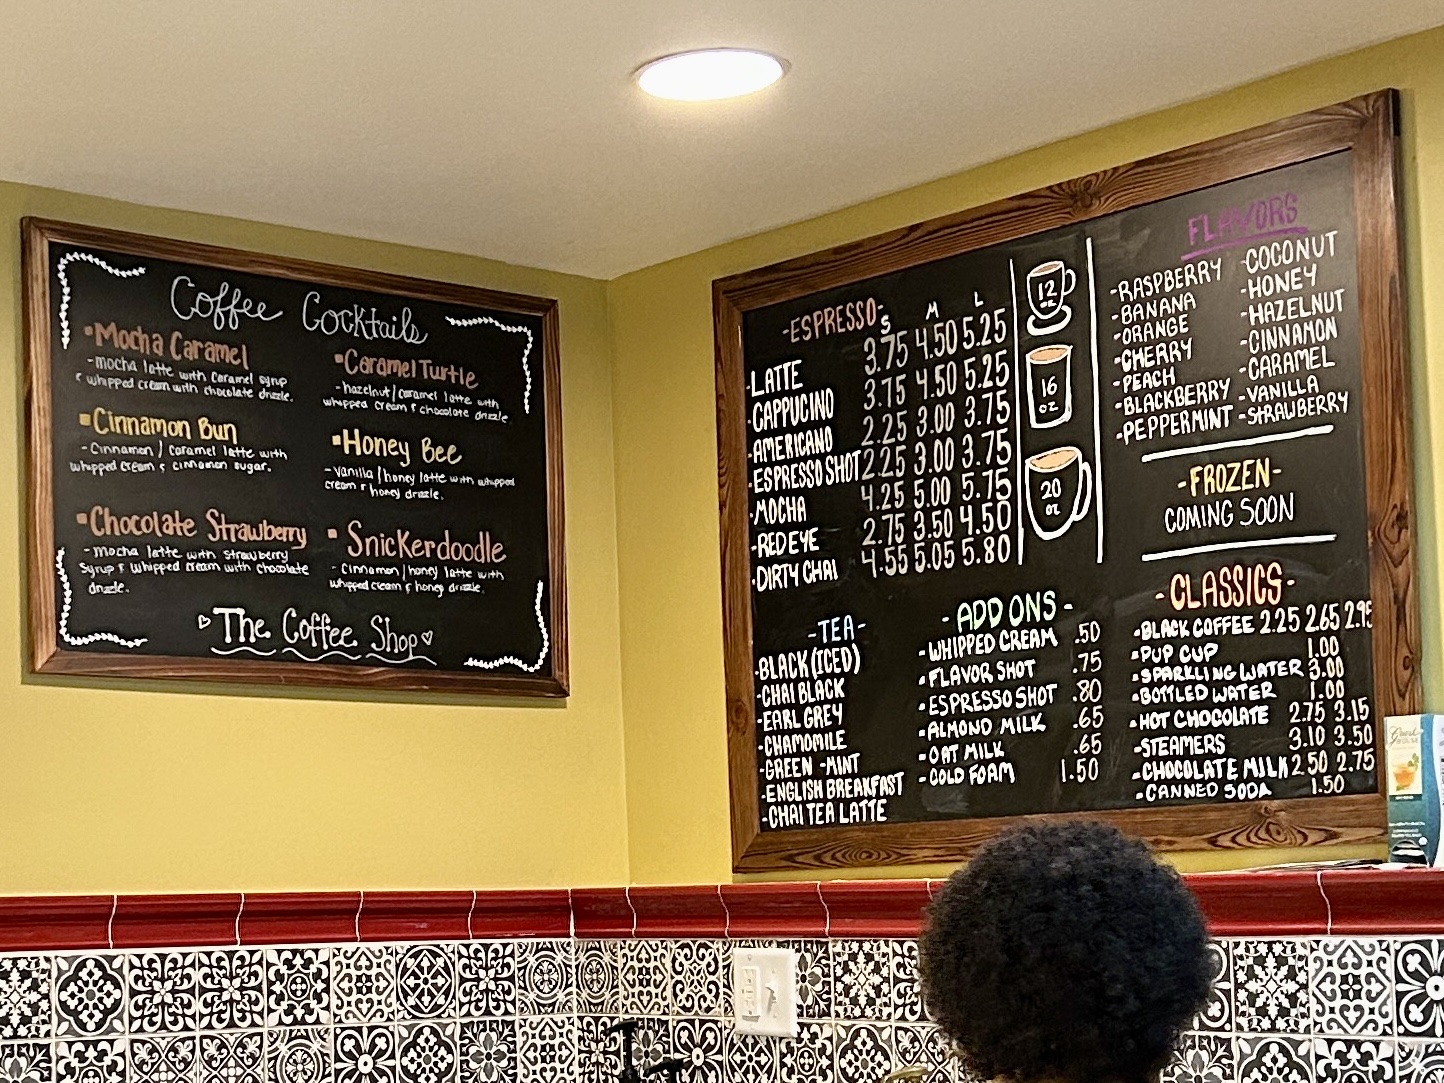 Coffee Cocktails
▪Mocha Caramel
-mocha latte with caramel syrup
& whipped cream with chocolate drizzle.
▪Cinnamon Bun
-Cinnamon / caramel latte with
whipped cream & cinnamon sugar.
▪Chocolate Strawberry
-mocha latte with strawberry
syrup & whipped cream with chocolate
drizzle.
▪Caramel Turtle
-hazelnut/caramel latte with
whipped cream & chocolate drizzle
▪Honey Bee
-vanilla/honey latte with whipped
cream & honey drizzle.
▪Snickerdoodle
-Cinnamon/honey latte with
whipped cream & honey drizzle.
♡The Coffee Shop♡
-ESPRESSO- S M L
-LATTE 3.75 4.50 5.25
-CAPPUCINO 3.75 4.50 5.25
-AMERICANO 2.25 3.00 3.75
-ESPRESSO SHOT 2.25 3.00 3.75
-MOCHA 4.25 5.00 5.75
-REDEYE 2.75 3.50 4.50
-DIRTY CHAI 4.55 5.05 5.80
12
oz
16
oz
20
oz
FLAVORS
-RASPBERRY
-BANANA
-ORANGE
-CHERRY
-PEACH
-BLACKBERRY
-PEPPERMINT
-COCONUT
-HONEY
-HAZELNUT
-CINNAMON
-CARAMEL
-VANILLA
-STRAWBERRY
-FROZEN-
COMING SOON
-TEA-
-BLACK (ICED)
-CHAI BLACK
-EARL GREY
-CHAMOMILE
-GREEN -MINT
-ENGLISH BREAKFAST
-CHAI TEA LATTE
-ADD ONS-
-WHIPPED CREAM .50
-FLAVOR SHOT .75
-ESPRESSO SHOT .80
-ALMOND MILK .65
-OAT MILK .65
-COLD FOAM 1.50
-CLASSICS-
-BLACK COFFEE 2.25 2.65 2.95
-PUP CUP 1.00
-SPARKLING WATER 3.00
-BOTTLED WATER 1.00
-HOT CHOCOLATE 2.75 3.15
-STEAMERS 3.10 3.50
-CHOCOLATE MILK 2.50 2.75
-CANNED SODA 1.50